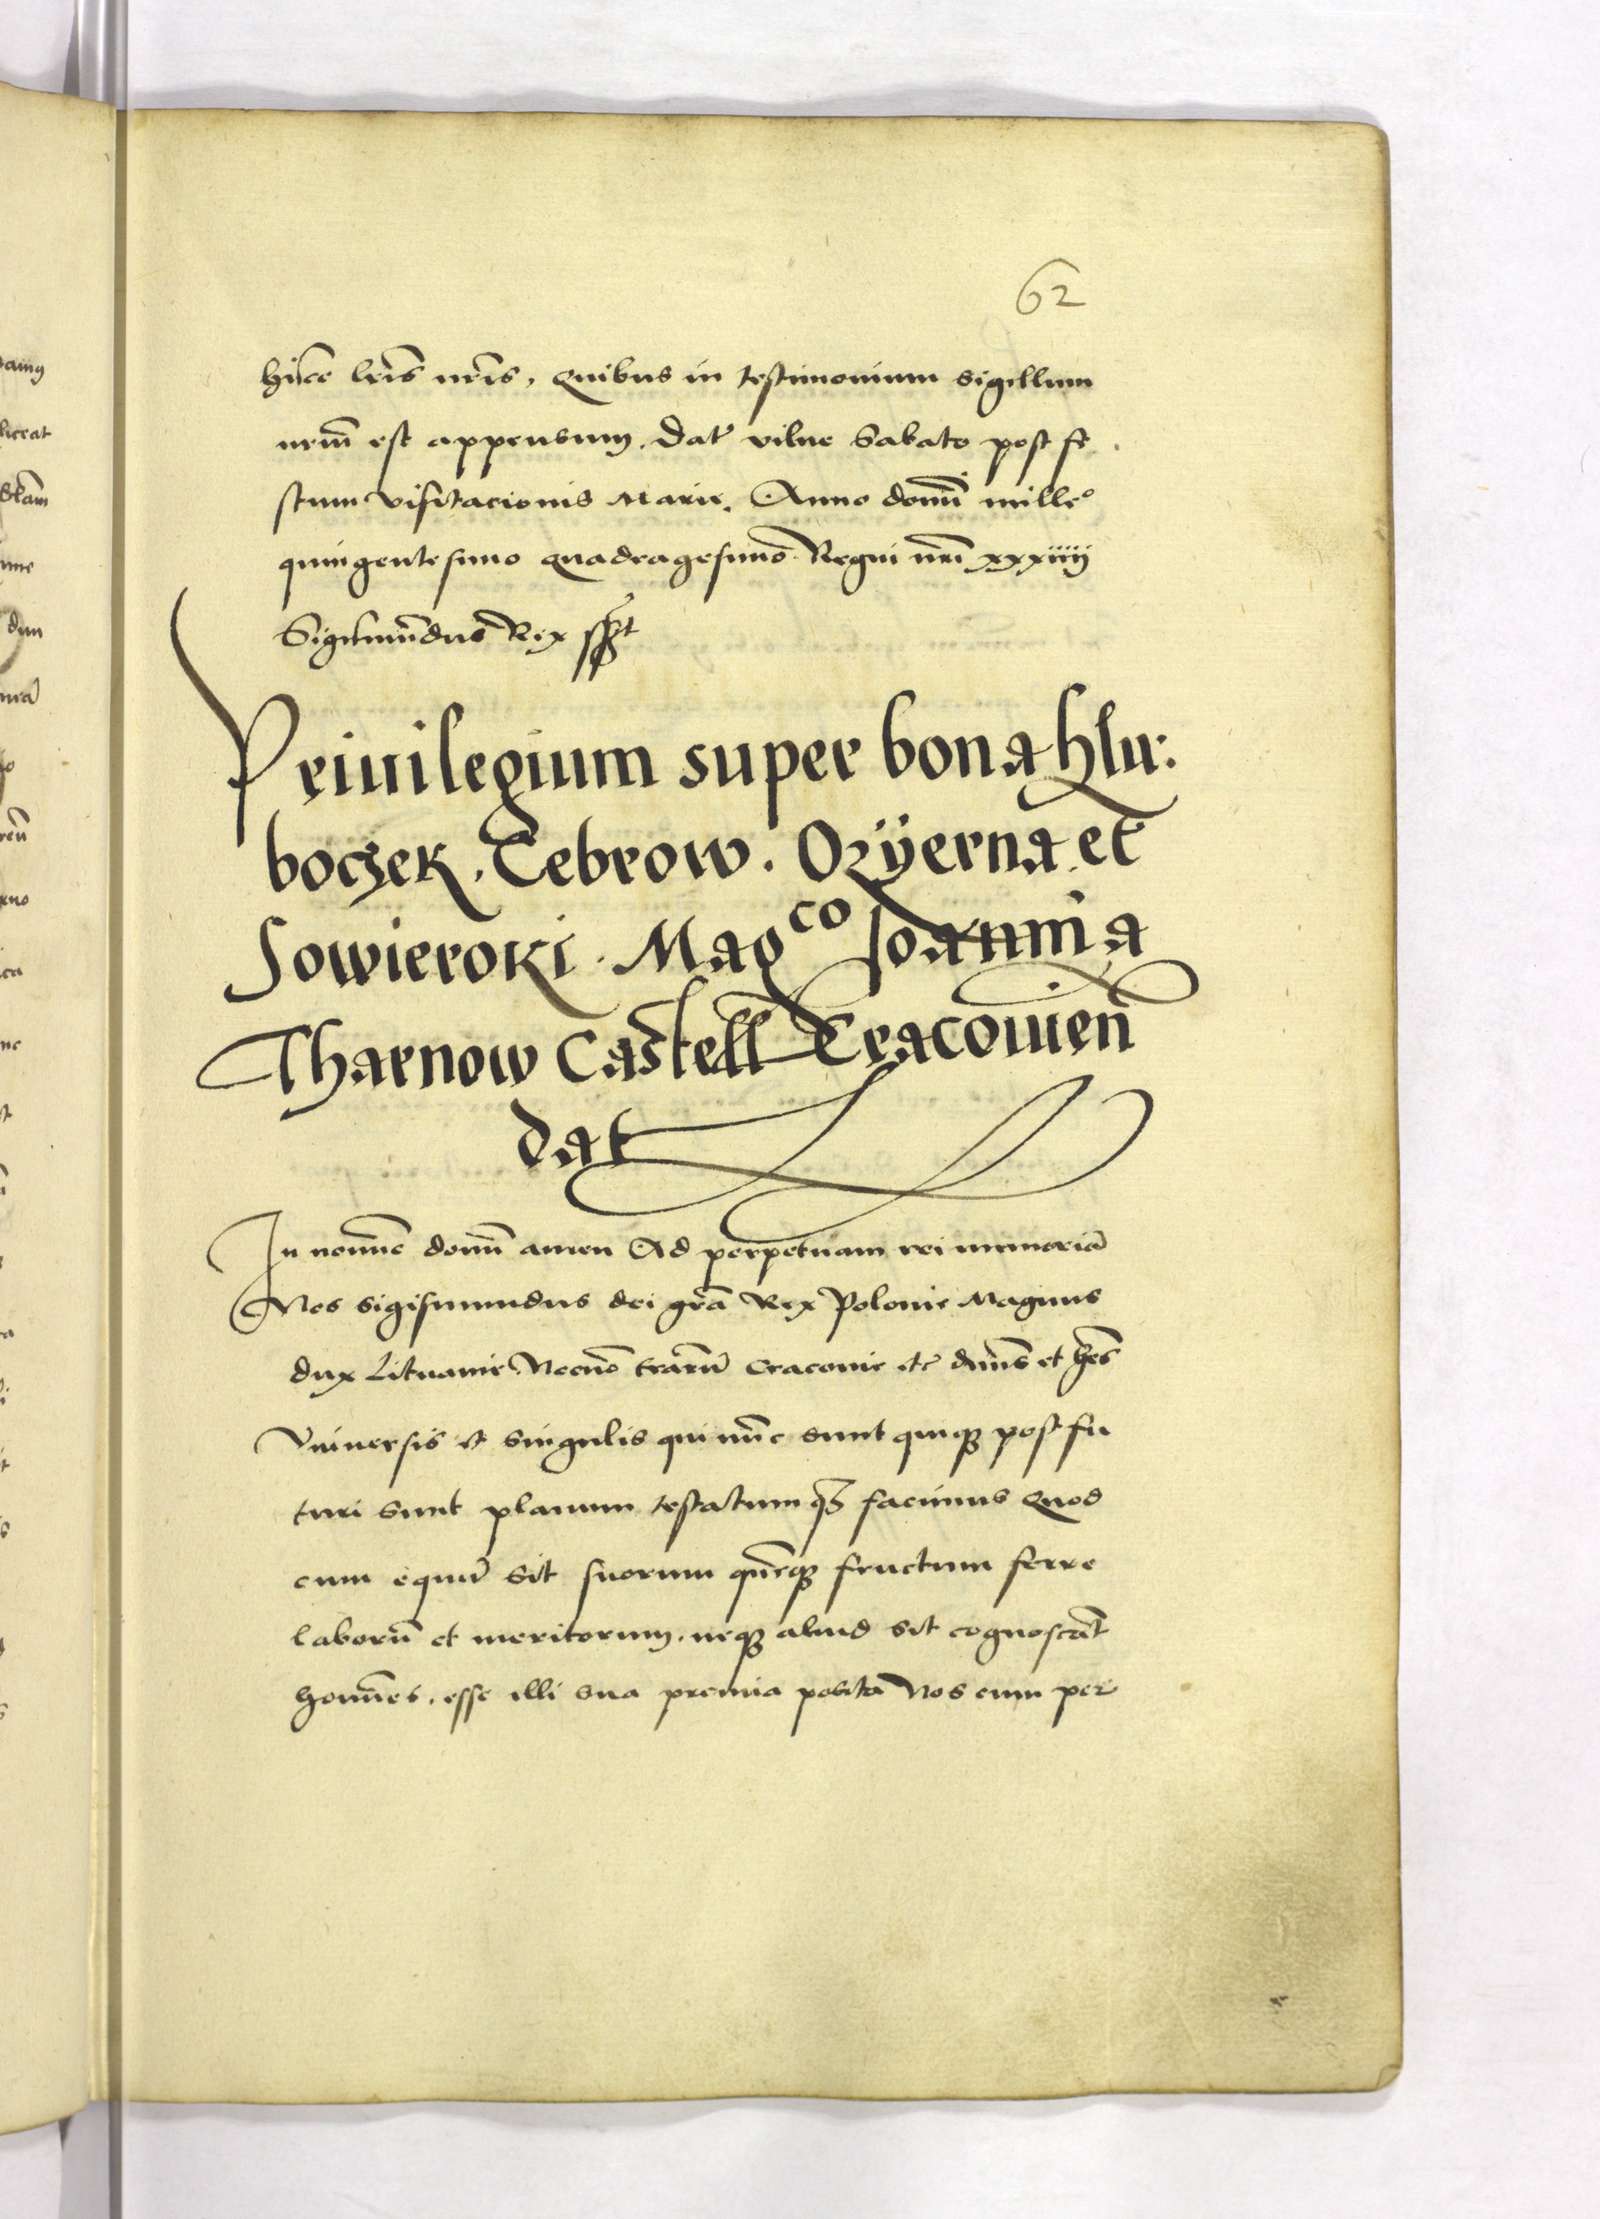 62
hiisce lris nris, quibus in testimonium sigillum
nrum est appensum. Dat vilne Sabato post fe
stum visitacionis Marie. Anno domi mille°
quingentesimo quadragesimo Regni nri xxxiiij
Sigismudus Rex sst
Priuilegium super bona hlu:
boczek. Cebrow. Ozÿerna et
Sowieroki. Mag^co Joanni a
Tharnow Castell Cracouien
dat
In nomie domi amen Ad perpetuam rei memoria
Nos Sigismundus dei gra Rex Polonie Magnus
dux Lituanie Necno trarum Cracouie etc dnus et hes
Vniuersis et singulis qui nuc sunt quique post fu
turi sunt planum testatum q facimus Quod
cum equu sit suorum queque fructum ferre
laboru et meritorum. neque aliud sit cognoscat
homies. esse illi sua premia posita Nos cum per